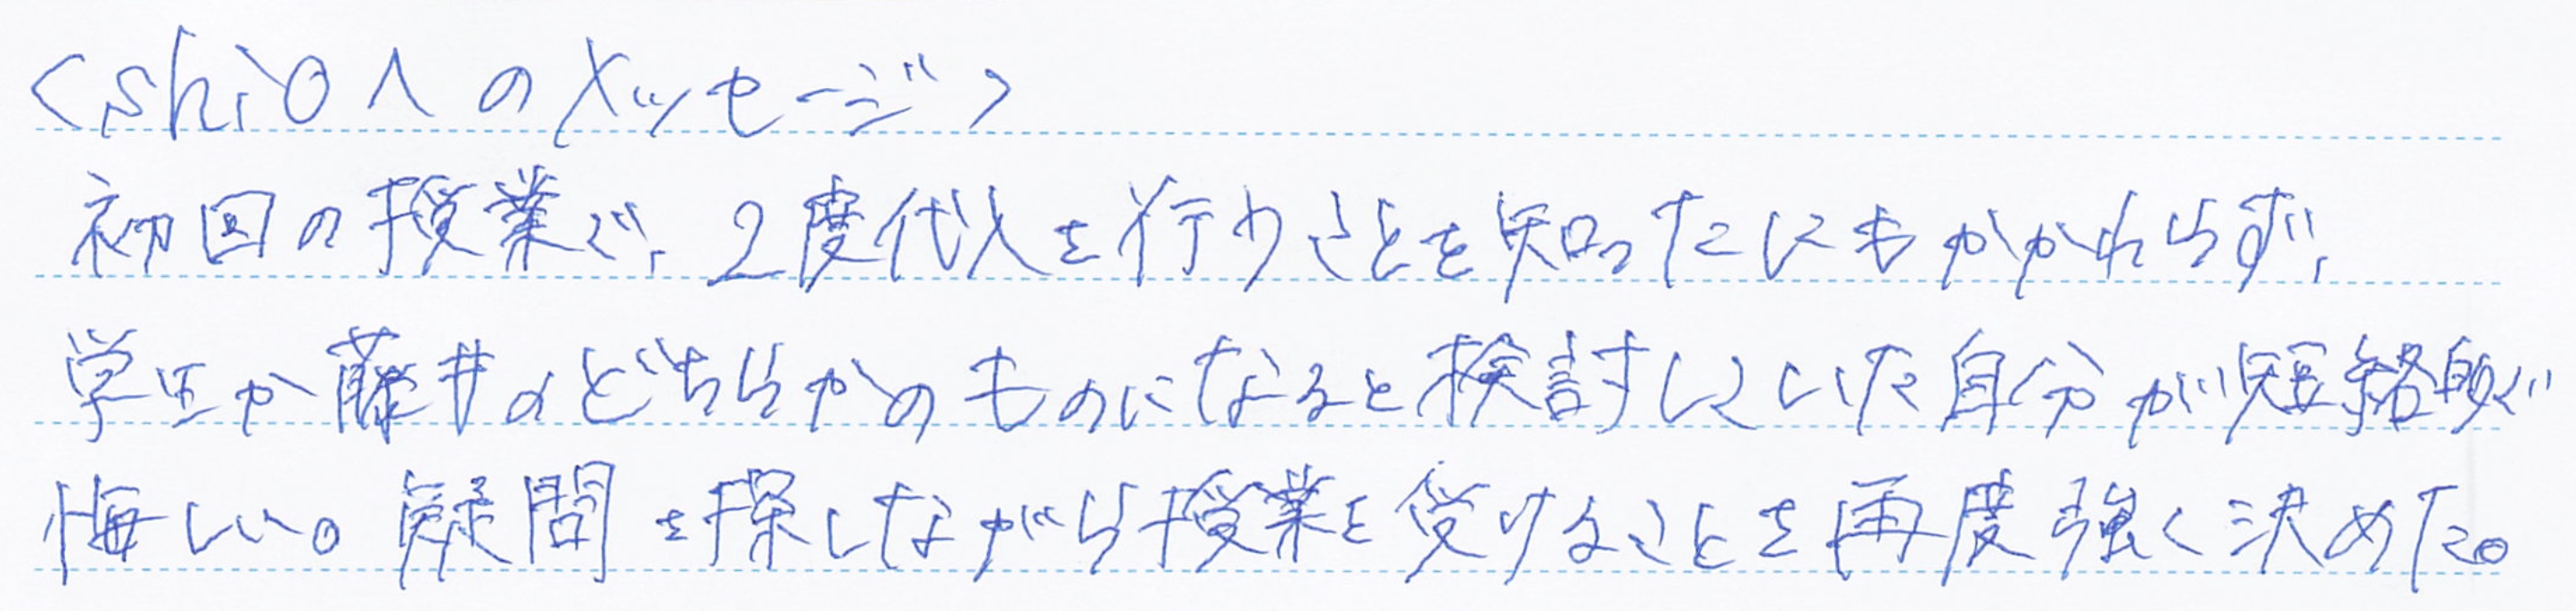 <shioへのメッセージ>
初回の授業で、2度代入を行うことを知ったにもかかわらず、
学生か藤井のどちらかのものになると検討していた自分が短絡的で
悔しい。疑問を探しながら授業を受けることを再度強く決めた。